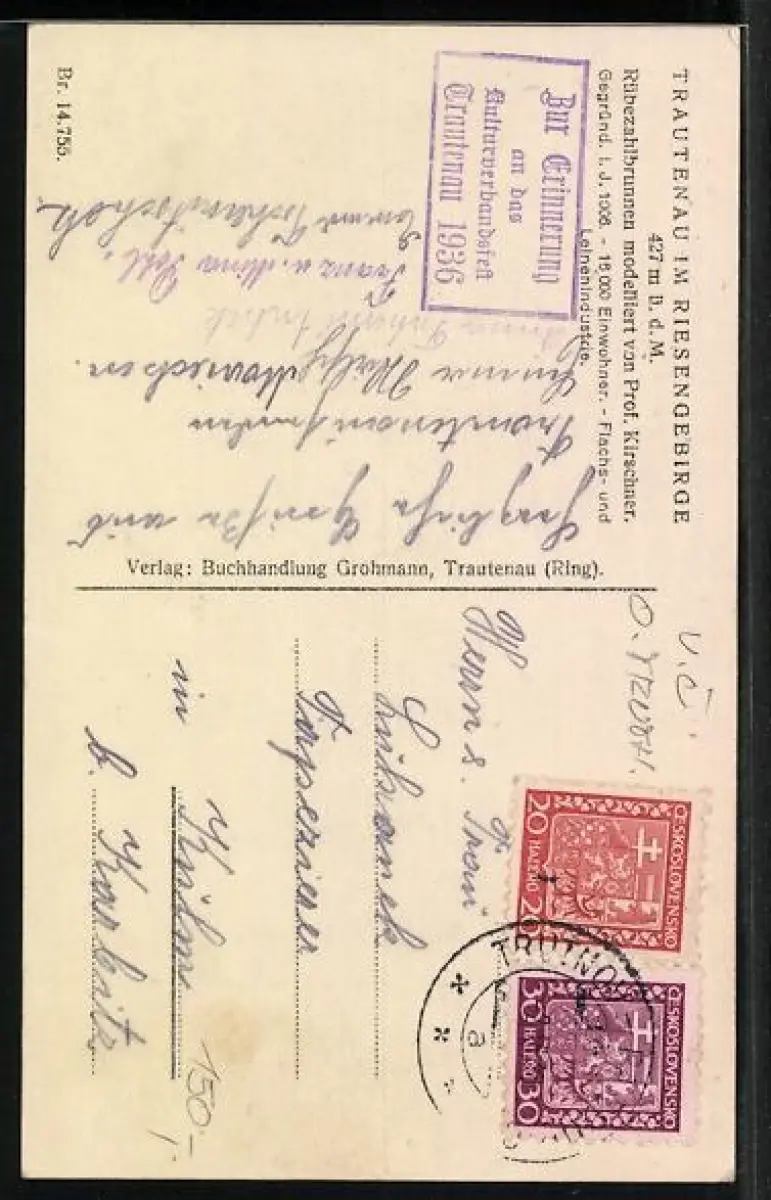 TRAUTENAU IM RIESENGEBIRGE
427 m ü. d. M.
Rübezahlbrunnen modelliert von Prof. Kirschner.
Gegründ. i. J. 1006. - 16,000 Einwohner. - Flachs- und
Leinenindustrie.
Zur Erinnerung
an das
Kulturverbandsfest
Trautenau 1936
Br. 14.755.
Herzliche Grüße aus
Trautenau senden
Franz u. Mina
Verlag: Buchhandlung Grohmann, Trautenau (Ring).
V.Č.
Herrn u. Frau
Tapezierer
in Kulm
b. Karbitz
150.-
ČESKOSLOVENSKO
20 HALÉŘŮ 20
ČESKOSLOVENSKO
30 HALÉŘŮ 30
TRUTNOV
a